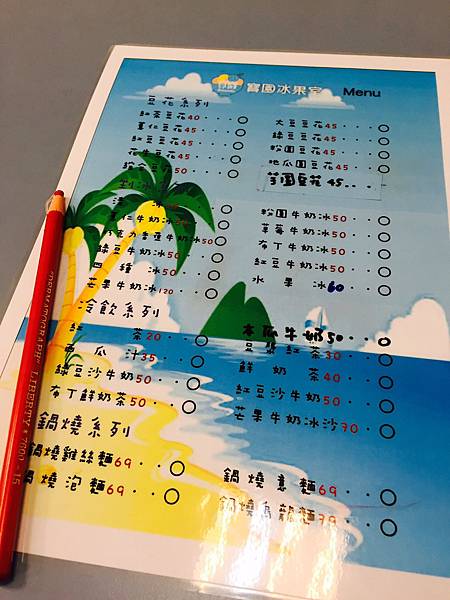 寶圓冰果室 Menu
豆花系列
紅茶豆花40
薏仁豆花45
紅豆豆花45
花生豆花45
綜合豆花50
大豆豆花45
綠豆豆花45
粉圓豆花45
地瓜圓豆花45
芋圓豆花45
刨冰
薏仁牛奶冰50
巧克力香蕉牛奶冰50
綠豆牛奶冰50
四種冰50
芒果牛奶冰120
粉圓牛奶冰50
草莓牛奶冰50
布丁牛奶冰50
紅豆牛奶冰50
水果冰60
冷飲系列
紅茶20
西瓜汁35
綠豆沙牛奶50
布丁鮮奶茶50
木瓜牛奶50
豆漿紅茶30
鮮奶茶40
紅豆沙牛奶50
芒果牛奶冰沙70
鍋燒系列
鍋燒雞絲麵69
鍋燒泡麵69
鍋燒意麵69
鍋燒烏龍麵79
"DERMATOGRAPH" LIBERTY * 7000-15